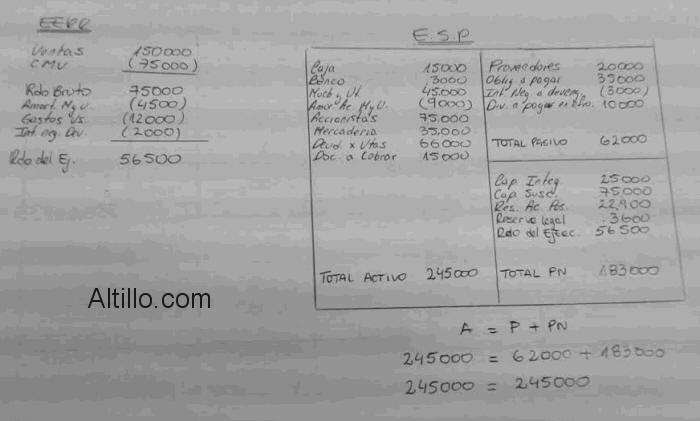 EERR
Ventas 150000
CMV (75000)
Rdo Bruto 75000
Amort. M y U. (4500)
Gastos Vs. (12000)
Int. ng. Dev. (2000)
Rdo del Ej. 56500
E.S.P.
Caja 15000
Banco 3000
Mueb y Ut. 45.000
Amor Ac M y U. (9000)
Accionistas 75.000
Mercaderia 35.000
Deud x Vtas 66000
Doc. a Cobrar 15000
TOTAL ACTIVO 245000
Proveedores 20000
Oblig a pagar 35000
Int Neg a deveng. (3000)
Div. a pagar en efvo. 10000
TOTAL PASIVO 62000
Cap Integ. 25000
Cap Susc. 75000
Res. Ac. Pos. 22,900
Reserva legal 3600
Rdo del Ejerc. 56500
TOTAL PN 183000
A = P + PN
245000 = 62000 + 183000
245000 = 245000
Altillo.com